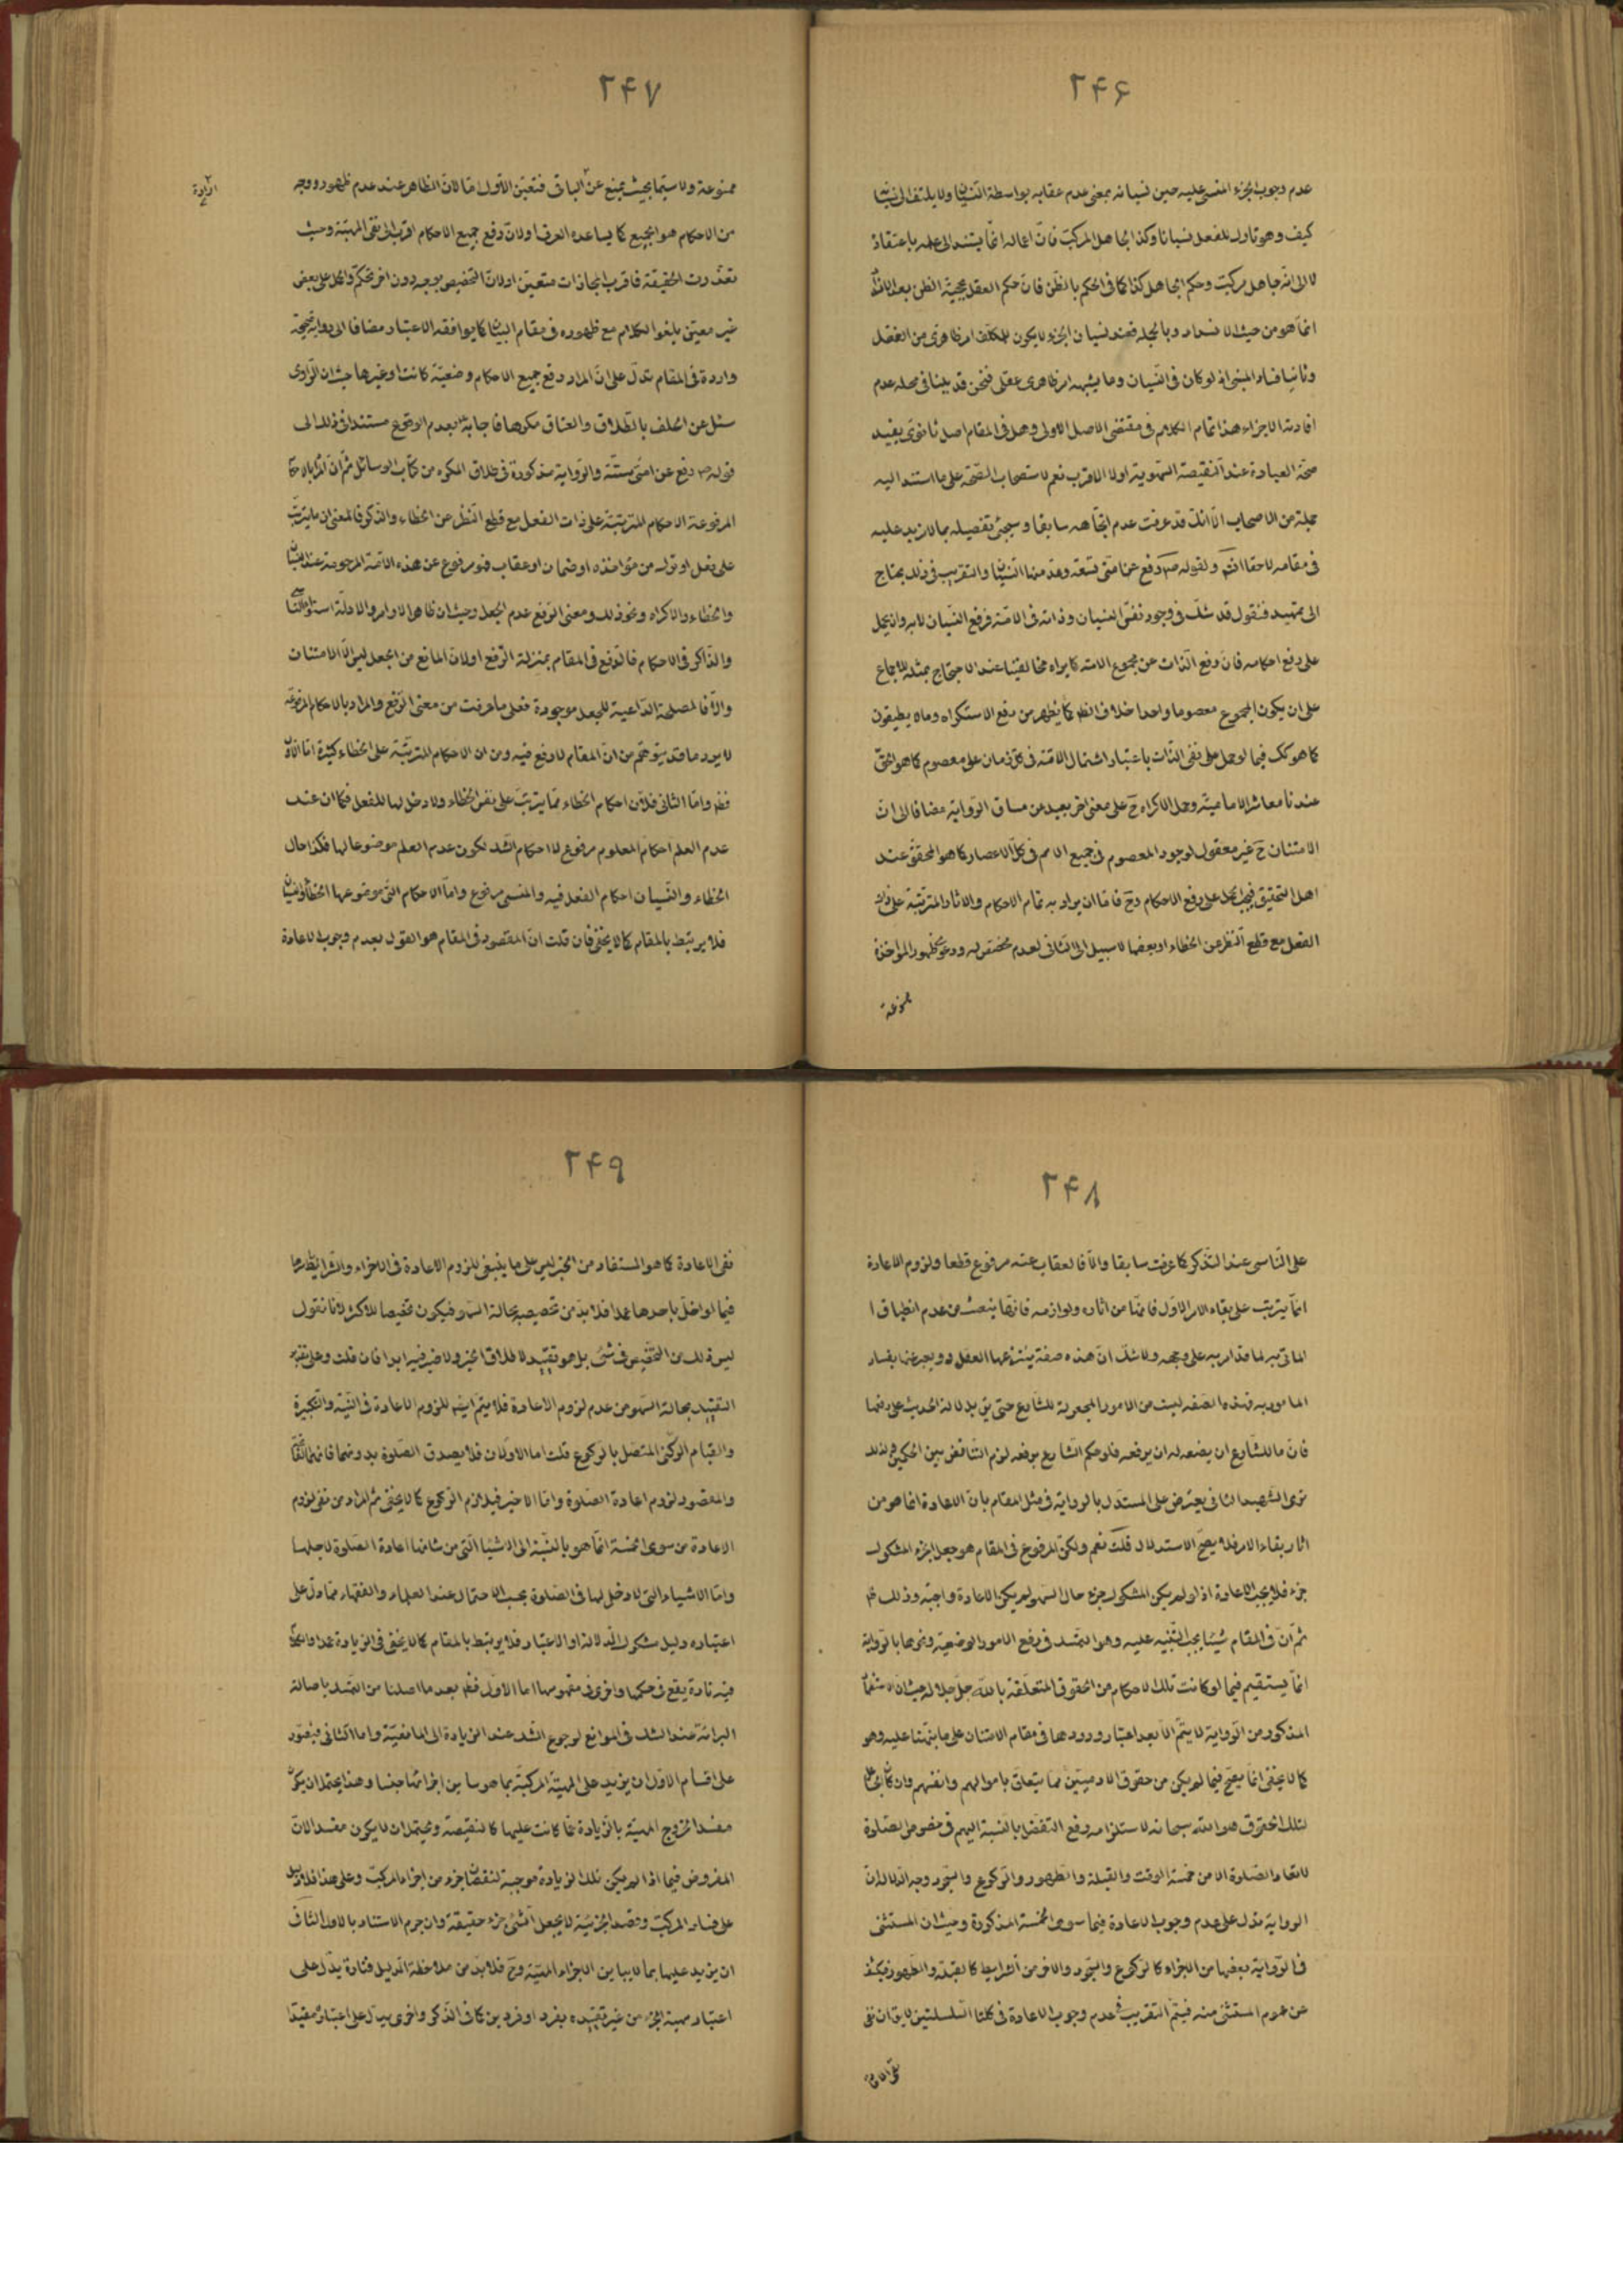 ۲۴۶
عدم وجوب الجزء المنسى عليه حين نسيانه بمعنى عدم عقابه بواسطة النسيان ولا يلتفت الى نسيانه
كيف وهو تاول للفعل نسيانا وكذا الجاهل المركب فان اعماله انما يستند الى علمه باعتقاده
لا الى انه جاهل مركب وحكم الجاهل كذا كما فى الحكم بالظن فان حكم العقل بحجية الظن بعد الانسداد
انما هو من حيث الانسداد وبالجملة فعند نسيان الجزء لا يكون للمكلف امر ظاهرى من العقل
وثانيا فساد المبنى اذ لو كان فى النسيان وما يشبهه امر ظاهرى عقلى فنحن قد بينا فى محله عدم
افادته الاجزاء هذا تمام الكلام فى مقتضى الاصل الاولى وهل فى المقام اصل ثانوى يفيد
صحة العبادة عند النقيصة السهوية اولا الاقرب نعم لاستصحاب الصحة على ما استند اليه
جملة من الاصحاب الا انك قد عرفت عدم اتجاهه سابقا وسيجئ تفصيله بما لا مزيد عليه
فى مقامه لاحقا انشاء ولقوله ص رفع عن امتى تسعة وعد منها النسيان والتقريب فى ذلك يحتاج
الى تمهيد فنقول قد شك فى وجود نفس النسيان وذاته فى الامة فرفع النسيان لا بد وان يحمل
على رفع احكامه فان رفع الذات عن مجموع الامة كما يراه مخالفينا عند الاحتجاج بمثله للاجماع
على ان يكون المجموع معصوما واحدا خلاف الظ كما يظهر من رفع الاستكراه وما لا يطيقون
كما هو كك فيما لو حمل على نفى الذات باعتبار اشتمال الامة فى كل زمان على معصوم كما هو الحق
عندنا معاشر الامامية وحمل الاكراه ح على معنى اخر بعيد من مساق الرواية مضافا الى ان
الامتنان ح غير معقول لوجود المعصوم فى جميع الامم فى كل الاعصار كما هو المحقق عند
اهل التحقيق فيجب الحمل على رفع الاحكام وح فاما ان يراد به تمام الاحكام والاثار المترتبة على ذات
الفعل مع قطع النظر عن الخطاء او بعضها لا سبيل الى الثانى لعدم مخصص له ودعوى ظهور المؤاخذة
ممنوعة
۲۴۷
ممنوعة ولا سيما بحيث يمنع عن الباقى فتعين الاول اما لان الظاهر عند عدم ظهور ووجه
من الاحكام هو الجميع كما يساعده العرف اولان رفع جميع الاحكام اقرب الى نفى المهية وحيث
تعذرت الحقيقة فاقرب المجازات متعين اولان التخصيص بوجه دون اخر تحكم والحمل على بعض
غير معين يلغو الكلام مع ظهوره فى مقام البيان كما يوافقه الاعتبار مضافا الى رواية صحيحة
واردة فى المقام تدل على ان المراد رفع جميع الاحكام وضعية كانت او غيرها حيث ان الراوى
سئل عن الحلف بالطلاق والعتاق مكرها فاجابه بعدم الوقوع مستندا فى ذلك الى
قوله ص رفع عن امتى ستة والرواية مذكورة فى طلاق المكره من كتاب الوسائل ثم ان المراد بالاحكام
المرفوعة الاحكام المترتبة على ذات الفعل مع قطع النظر عن الخطاء والذكر فالمعنى ان ما يترتب
على فعل او تركه من مؤاخذه او ضمان او عقاب فهو مرفوع عن هذه الامة المرحومة عند النسيان
والخطاء والاكراه ونحو ذلك ومعنى الرفع عدم الجعل وحيث ان ظاهر الاوامر والادلة استواء الناسى
والذاكر فى الاحكام فالدفع فى المقام بمنزلة الرفع اولان المانع من الجعل ليس الا الامتنان
والا فالمصلحة الداعية للجعل موجودة فعلى ما عرفت من معنى الرفع والمراد بالاحكام المرفوعة
لا يرد ما قد يتوهم من ان المقام لا رفع فيه ومن ان الاحكام المترتبة على الخطاء كثيرة اما الاول
فظ واما الثانى فلان احكام الخطاء مما يترتب على نفس الخطاء ولا دخل لها للفعل فكما ان عند
عدم العلم احكام المعلوم مرفوع لا احكام الشك لكون عدم العلم موضوعا لها فكذا حال
الخطاء والنسيان احكام الفعل فيه والمنسى مرفوع واما الاحكام التى موضوعها الخطاء والنسيان
فلا يرتبط بالمقام كما لا يخفى فان قلت ان المقصود فى المقام هو القول بعدم وجوب الاعادة
۲۴۸
على الناسى عند التذكر كما عرفت سابقا والا فالعقاب عنه مرفوع قطعا ولزوم الاعادة
انما يترتب على بقاء الامر الاول فانما من اثاره ولوازمه فانها ينبعث من عدم انطباق ا
الماتى به لما قد امر به على وجهه ولا شك ان هذه صفة ينتزعها العقل ويعبر عنها بفساد
المامور به فهذه الصفة ليست من الامور المجعولة للشارع حتى يق بدلالة الحديث على رفعها
فان ما للشارع ان يضعه له ان يرفعه فلو حكم الشارع برفعه لزم التناقض بين الحكمين ولذلك
نرى الشهيد الثانى يعترض على المستدل بالرواية فى مثل المقام بان الاعادة انما هو من
اثار بقاء الامر فلا يصح الاستدلال قلت نعم ولكن المرفوع فى المقام هو جعل الجزء المشكوك
جزء فلا يجب الاعادة اذ لو لم يكن المشكوك جزء حال السهو لم يكن الاعادة واجبة وذلك ظ
ثم ان فى المقام شيئا يجب التنبيه عليه وهو التمسك فى رفع الامور الوضعية ونحوها بالرواية
انما يستقيم فيما لو كانت تلك الاحكام من الحقوق المتعلقة بالله جل جلاله حيث ان الاستفادة
المذكور من الرواية لا يتم الا بعد اعتبار ورودها فى مقام الامتنان على ما نبهنا عليه وهو
كما لا يخفى انما يصح فيما لم يكن من حقوق الادميين مما يتعلق باموالهم وانفسهم وان كان الجاعل
لتلك الحقوق هو الله سبحانه لاستلزامه رفع التفضل بالنسبة اليهم فى خصوص الصلوة
لا تعاد الصلوة الا من خمسة الوقت والقبلة والطهور والركوع والسجود وجه الدلالة ان
الرواية تدل على عدم وجوب الاعادة فيما سوى الخمسة المذكورة وحيث ان المستثنى
فى الرواية بعضها من الاجزاء كالركوع والسجود والاخر من الشرايط كالقبلة والطهور فيكشف
عن عموم المستثنى منه فيتم التقريب فى عدم وجوب الاعادة فى كلتا السلسلتين لا يق ان نفى
نفى الاعادة
۲۴۹
نفى الاعادة كما هو المستفاد من الخبر ليس على ما ينبغى للزوم الاعادة فى الاجزاء والشرايط
فيما لو اخل باحدها عمدا فلا بد من تخصيصه بحالة السهو فيكون تخصيصا للاكثر لانا نقول
ليس ذلك من التخصيص فى شئ بل هو تقييد لاطلاق الخبر ولا ضير فيه ابدا فان قلت وعلى تقدير
التقييد بحالة السهو من عدم لزوم الاعادة فلا يتم ايضا للزوم الاعادة فى النية والتكبيرة
والقيام الركنى المتصل بالركوع قلت اما الاولان فلا يصدق الصلوة بدونهما
والمقصود لزوم اعادة الصلوة واما الاخير فيلازم الركوع كما لا يخفى ثم المراد من نفى لزوم
الاعادة من سوى الخمسة انما هو بالنسبة الى الاشياء التى من شانها اعادة الصلوة لاجلها
واما الاشياء التى لا دخل لها فى الصلوة بحسب الاحتمال عند العلماء والفقهاء مما دل على
اعتباره دليل مشكوك الدلالة او الاعتبار فلا يرتبط بالمقام كما لا يخفى فى الزيادة عمدا والكلام
فيه تارة يقع فى حكمها واخرى فى مفهومها اما الاول فظ بعد ما اصلنا من التمسك باصالة
البرائة عند الشك فى الموانع لرجوع الشك عند الزيادة الى المانعية واما الثانى فيتصور
على اقسام الاول ان يزيد على المهية المركبة بما هو سابق من اجزائها جنسا وهذا يحتمل ان يكون
مفسدا لخروج المهية بالزيادة عما كانت عليها كالنقيصة ويحتمل ان لا يكون مفسدا لان
المفروض فيما اذا لم يكن تلك الزيادة موجبة لنقصان جزء من اجزاء المركب وعلى هذا فلا دليل
على فساد المركب وقصد الجزئية لا يجعل الشئ جزء حقيقة وان حرم الاستناد بالاول الثانى
ان يزيد عليها بما لا يباين الاجزاء المهية وح فلا بد من ملاحظة الدليل فتارة يدل على
اعتبار مهية الجزء من غير تقييده بفرد او فردين كما فى الذكر واخرى يدل على اعتباره مقيدا